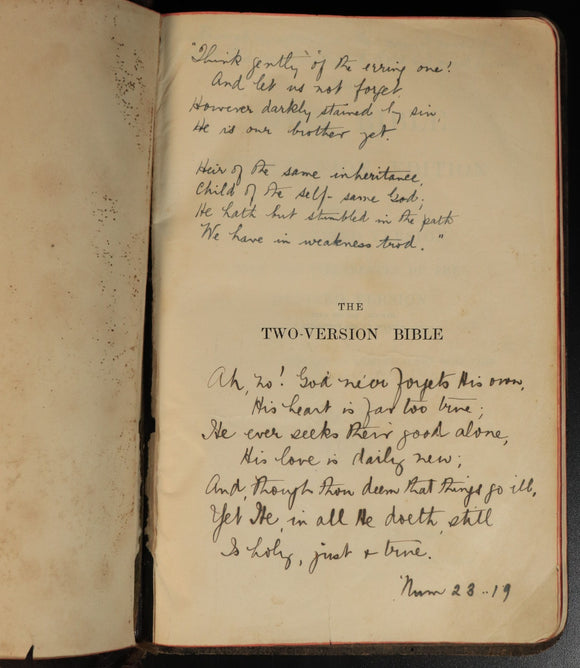 "Think gently" "of the erring one!
And let us not forget,
However darkly stained by sin,
He is our brother yet.
Heir of the same inheritance,
Child of the self-same God;
He hath but stumbled in the path
"We have in weakness trod."
THE
TWO-VERSION BIBLE
Ah, no! God never forgets His own,
His heart is far too true;
He ever seeks their good alone,
His love is daily new;
And, though thou deem that things go ill,
Yet He, in all He doeth, still
Is holy, just & true.
Num 23..19